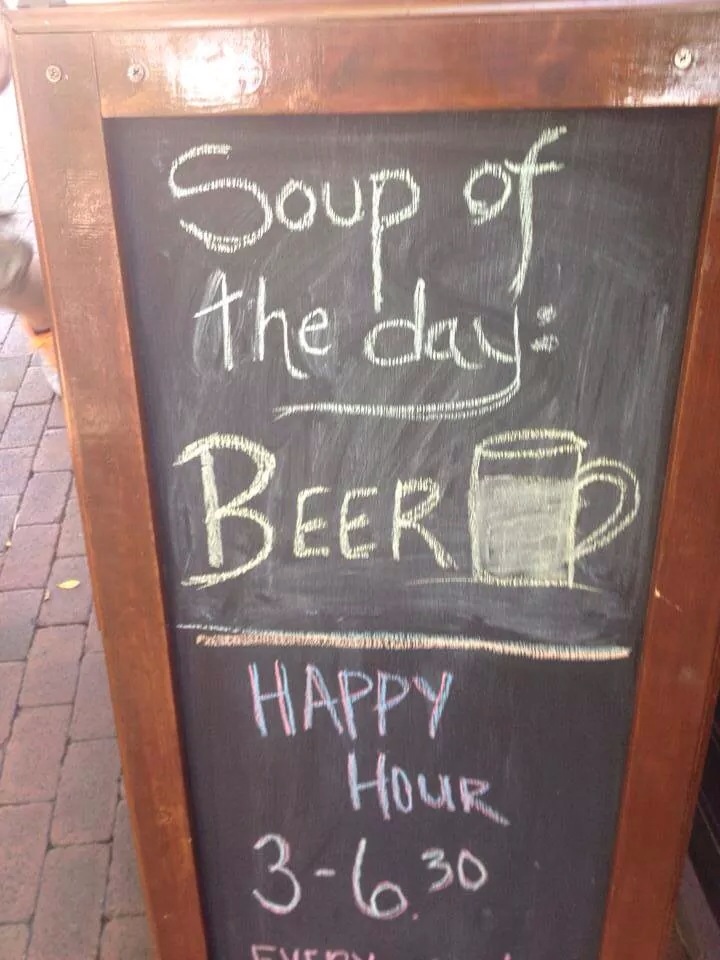 Soup of
the day:
BEER
HAPPY
HOUR
3-6.30
EVERY